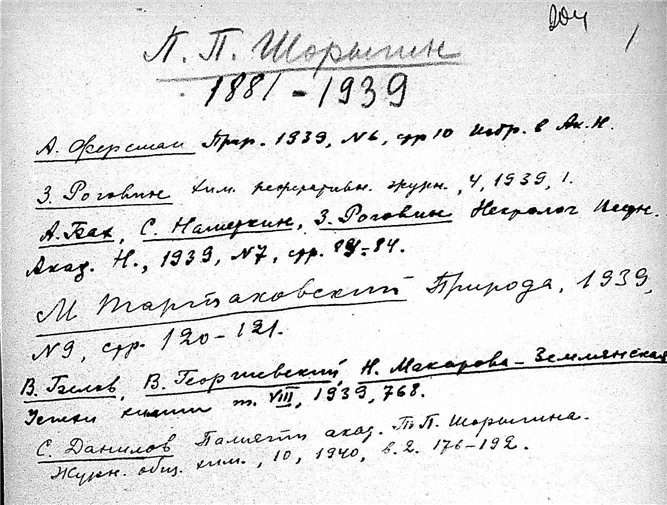 204
1
П. П. Шорыгин
1881 - 1939
А. Ферсман Прир. 1939, №6, стр 10 Избр. в Ак. Н.
З. Роговин Хим. рефератив. журн., 4, 1939, 1.
А. Бах, С. Наметкин, З. Роговин Некролог
Акад. Н., 1939, №7, стр. -84.
М Тартаковский Природа, 1939,
№9, стр. 120-121.
В. Белов, В. Георгиевский, Н. Макарова-Землянская
Успехи химии т. VIII, 1939, 768.
С. Данилов Памяти акад. П.П. Шорыгина.
Журн. общ. хим., 10, 1940, в. 2. 176-192.